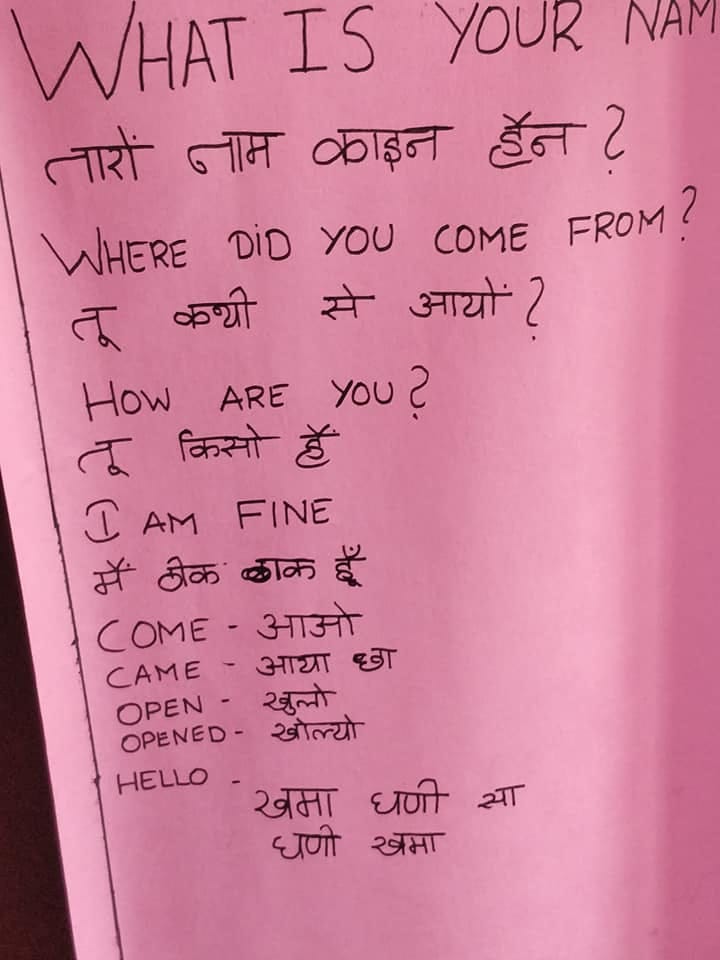 WHAT IS YOUR NAM
तारों नाम काइन हैंन ?
WHERE DID YOU COME FROM?
तू कथी से आयों ?
HOW ARE YOU?
तू किसो हैं
I AM FINE
मैं ठीक ठाक हूँ
COME - आओ
CAME - आया छा
OPEN - खुलो
OPENED - खोल्यो
HELLO -
खमा घणी सा
घणी खमा